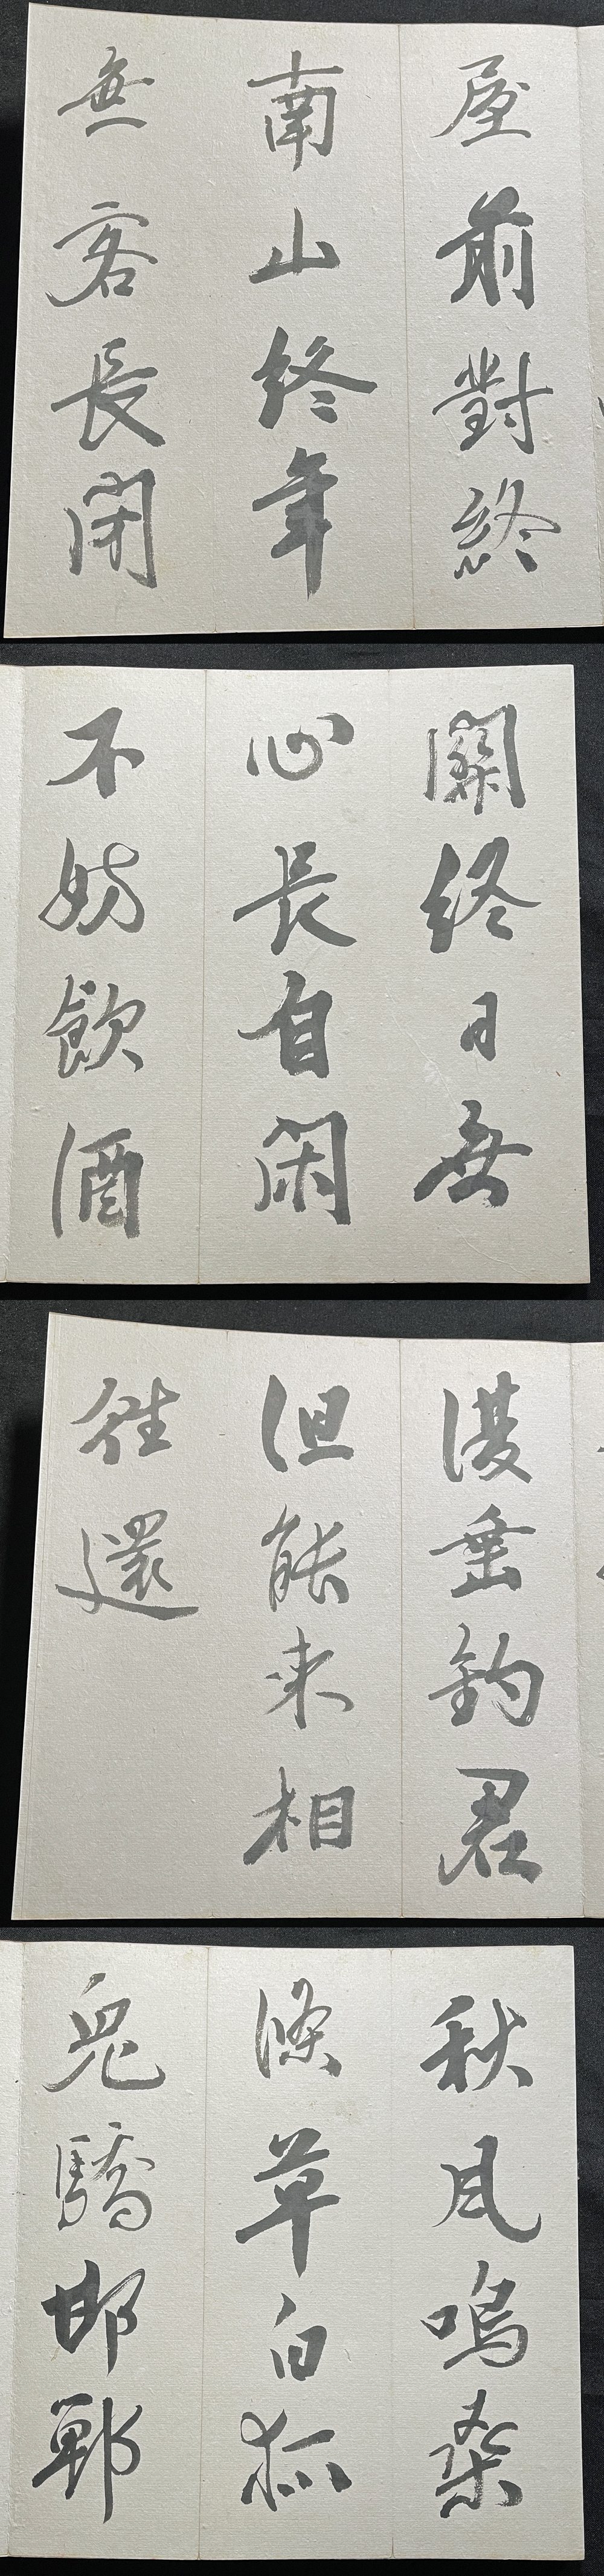 屋前對終
南山終年
無客長閉
關終日無
心長自閑
不妨飲酒
復垂釣君
但能來相
往還
秋風鳴桑
條草白狐
兔驕邯
鄲